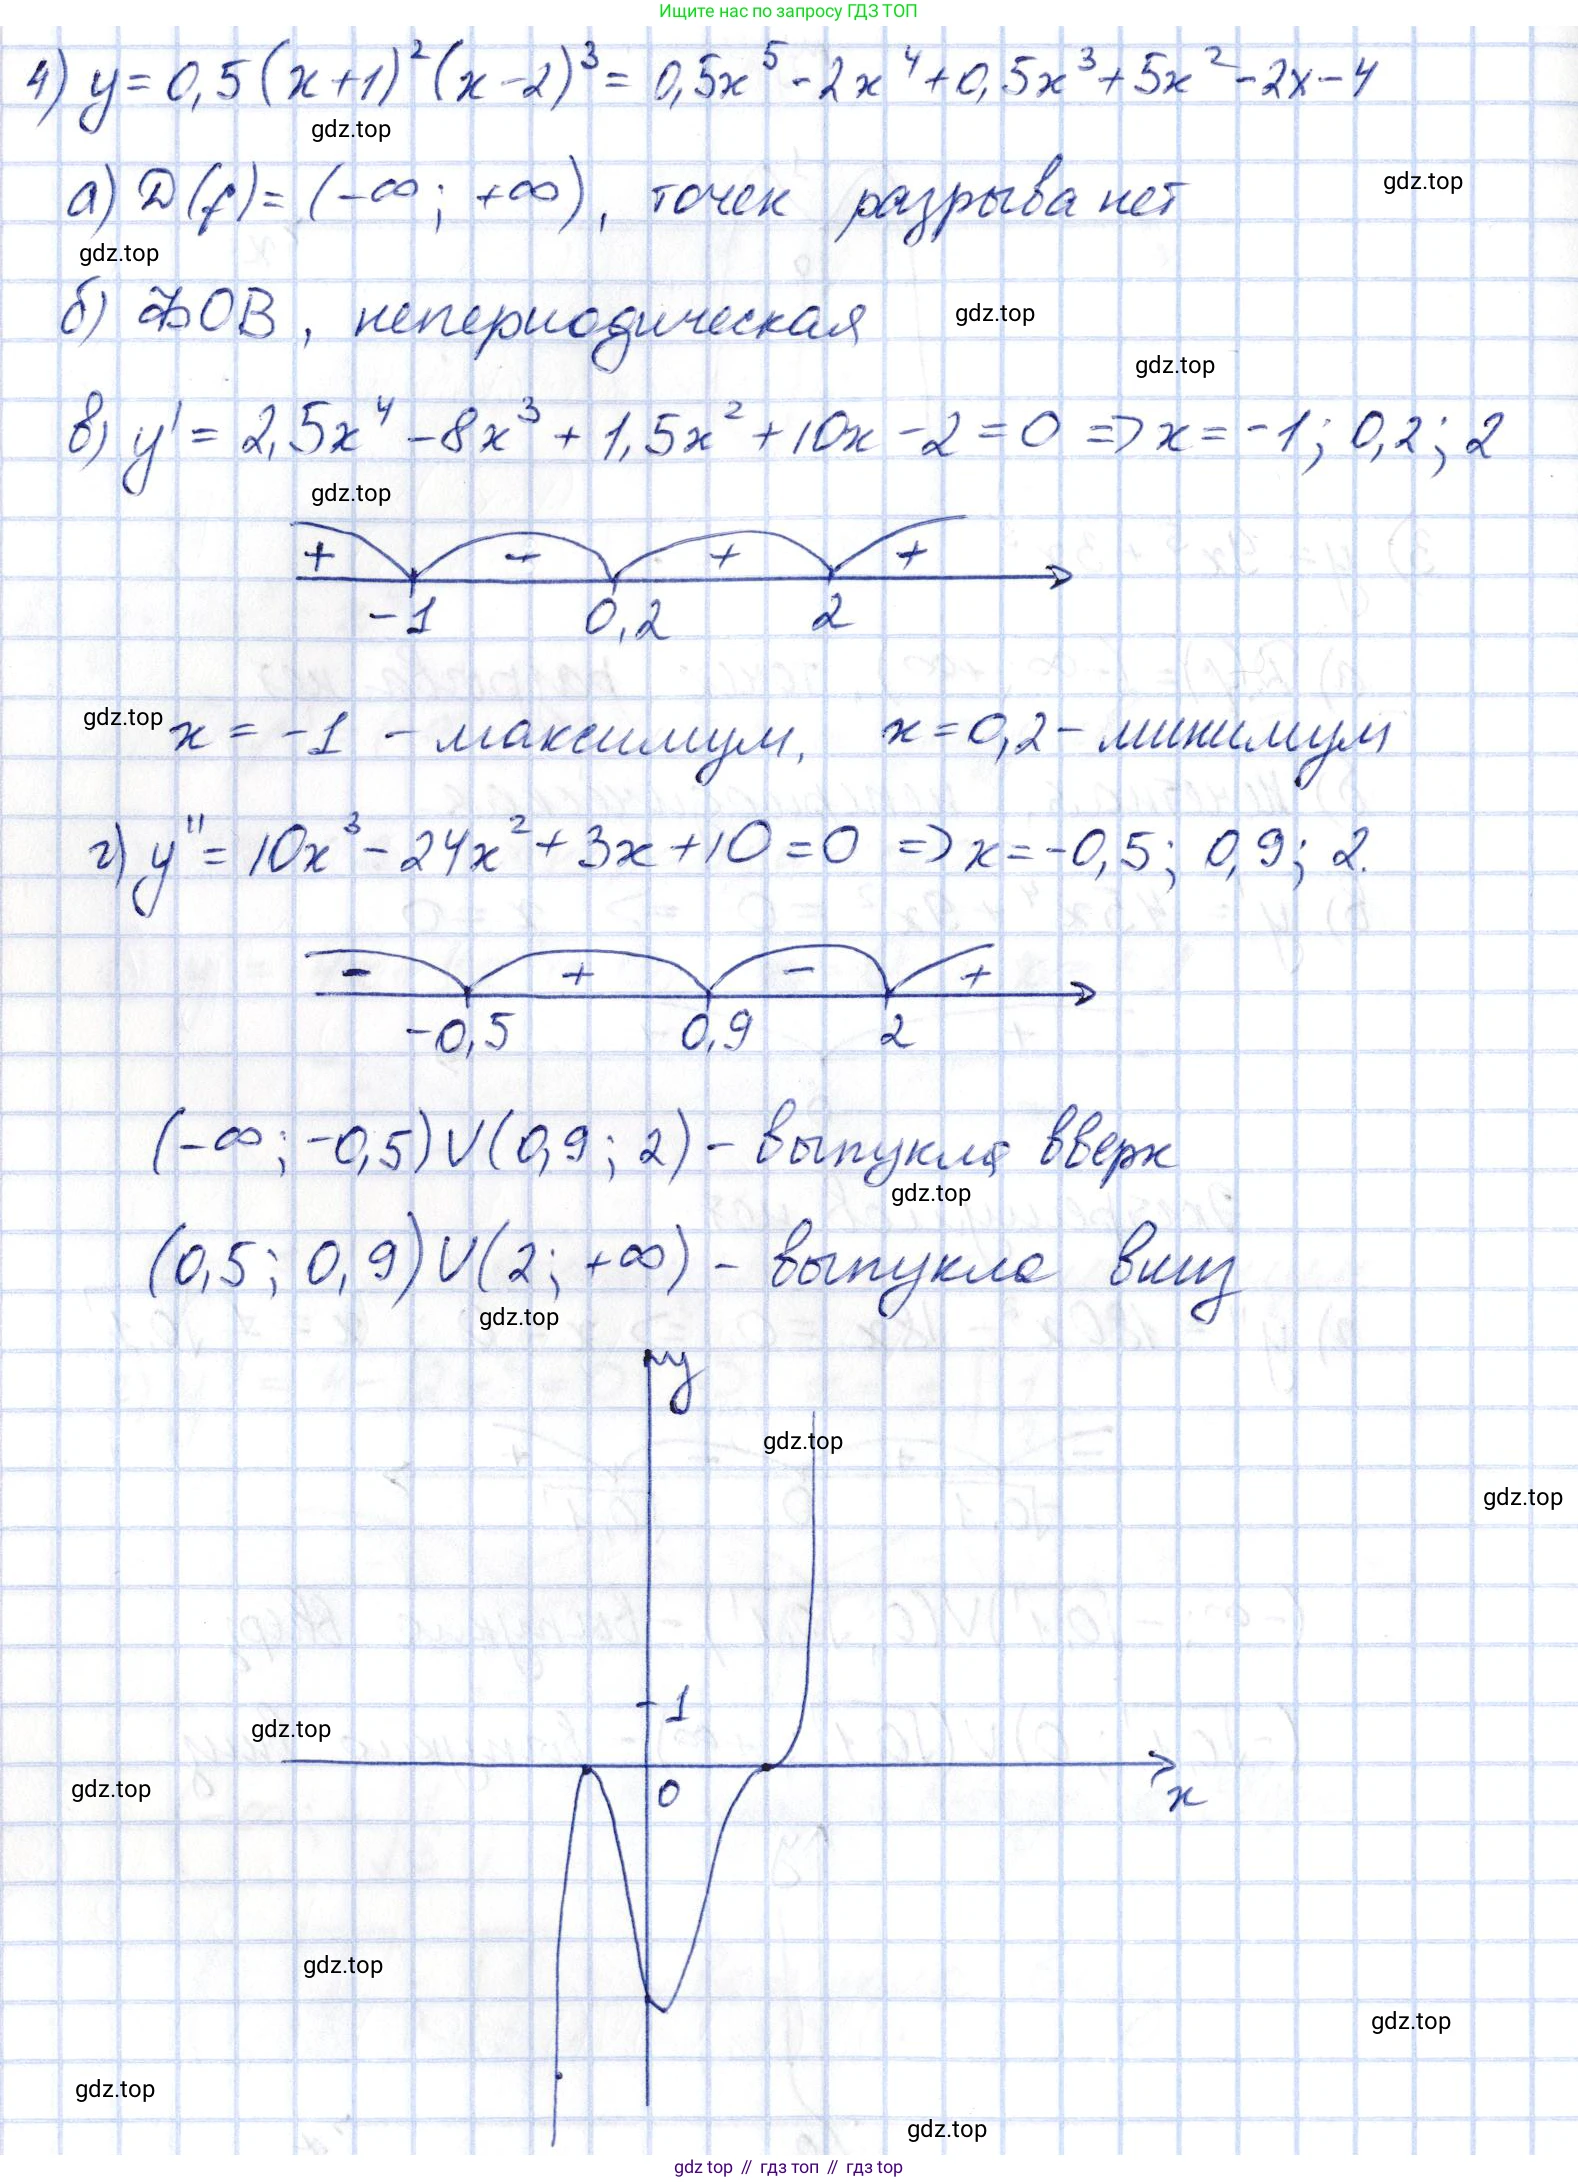 Ищите нас по запросу ГДЗ ТОП
4) y = 0,5(x+1)²(x-2)³ = 0,5x⁵ - 2x⁴ + 0,5x³ + 5x² - 2x - 4
gdz.top
а) D(f) = (-∞; +∞), точек разрыва нет
gdz.top
gdz.top
б) ФОВ, непериодическая
gdz.top
gdz.top
в) y' = 2,5x⁴ - 8x³ + 1,5x² + 10x - 2 = 0 => x = -1; 0,2; 2
gdz.top
+ - + +
-1 0,2 2
gdz.top
x = -1 - максимум, x = 0,2 - минимум
г) y'' = 10x³ - 24x² + 3x + 10 = 0 => x = -0,5; 0,9; 2.
- + - +
-0,5 0,9 2
(-∞; -0,5) ∪ (0,9; 2) - выпукла вверх
gdz.top
(0,5; 0,9) ∪ (2; +∞) - выпукла вниз
gdz.top
y
gdz.top
gdz.top
1
gdz.top
gdz.top
0
x
gdz.top
gdz.top
gdz.top
gdz.top
gdz top // гдз топ // гдз top